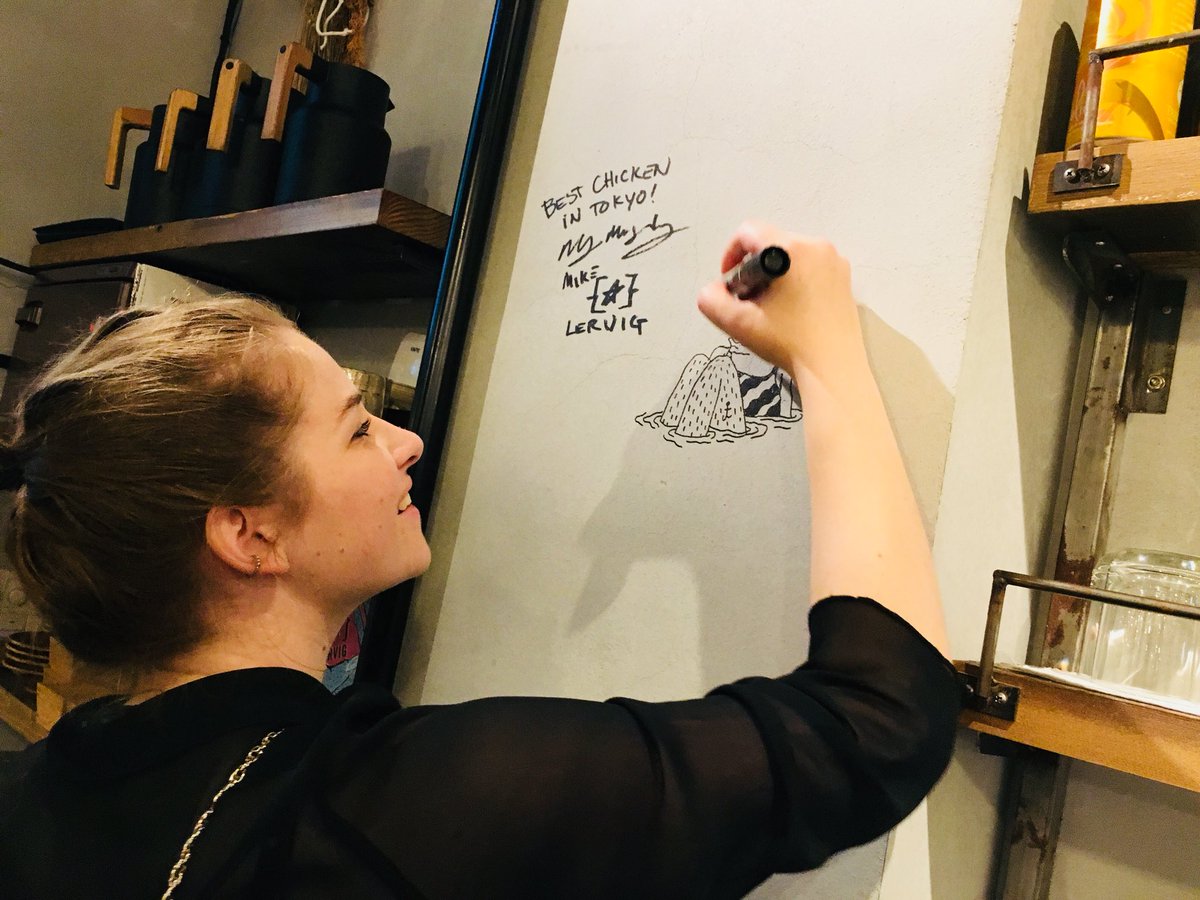 BEST CHICKEN
IN TOKYO!
MIKE
LERVIG